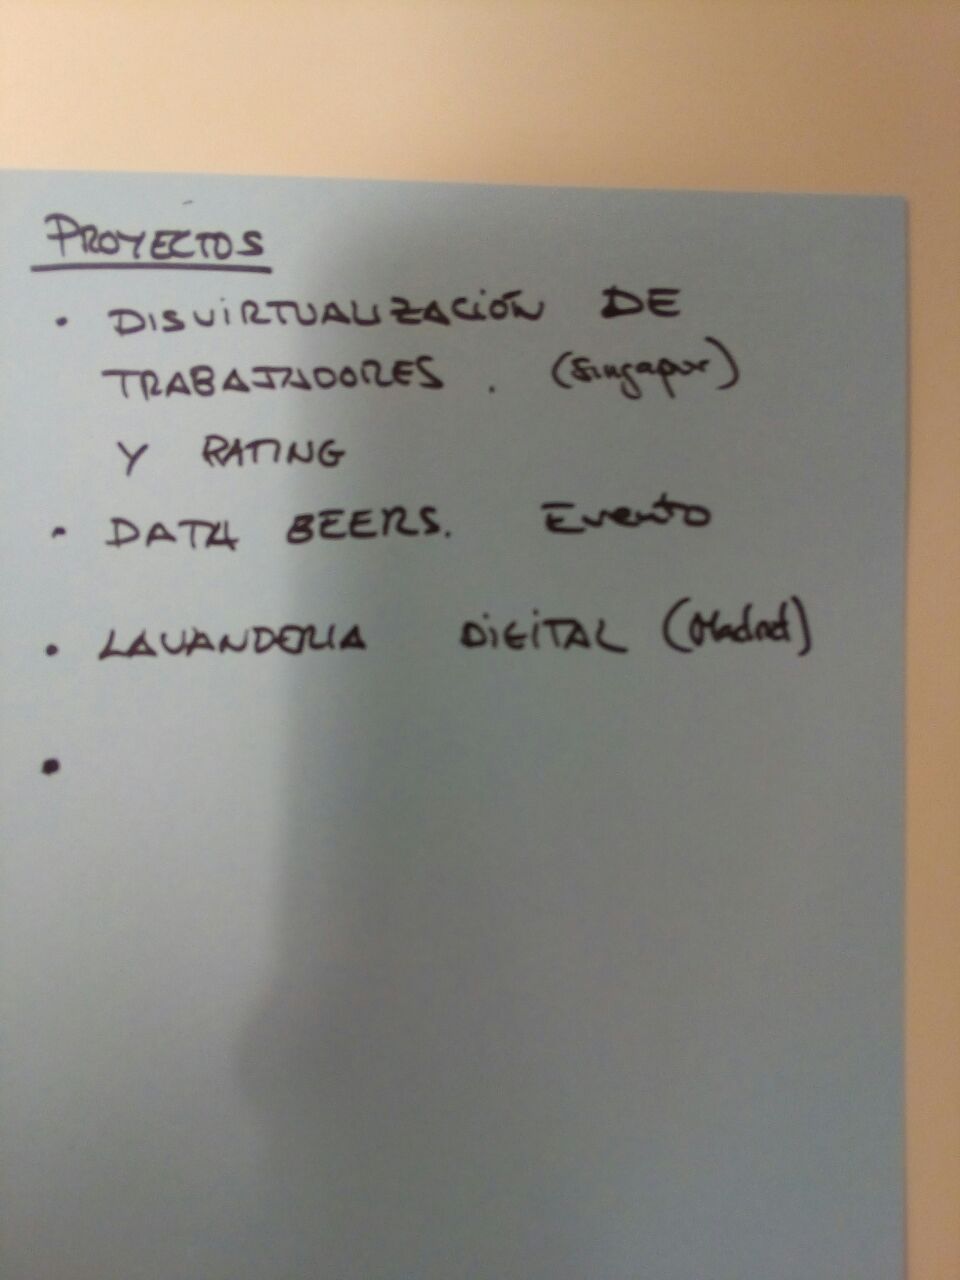 PROYECTOS
• DISVIRTUALIZACIÓN DE
TRABAJADORES. (Singapur)
Y RATING
• DATA BEERS. Evento
• LAVANDERIA DIGITAL (Madrid)
•